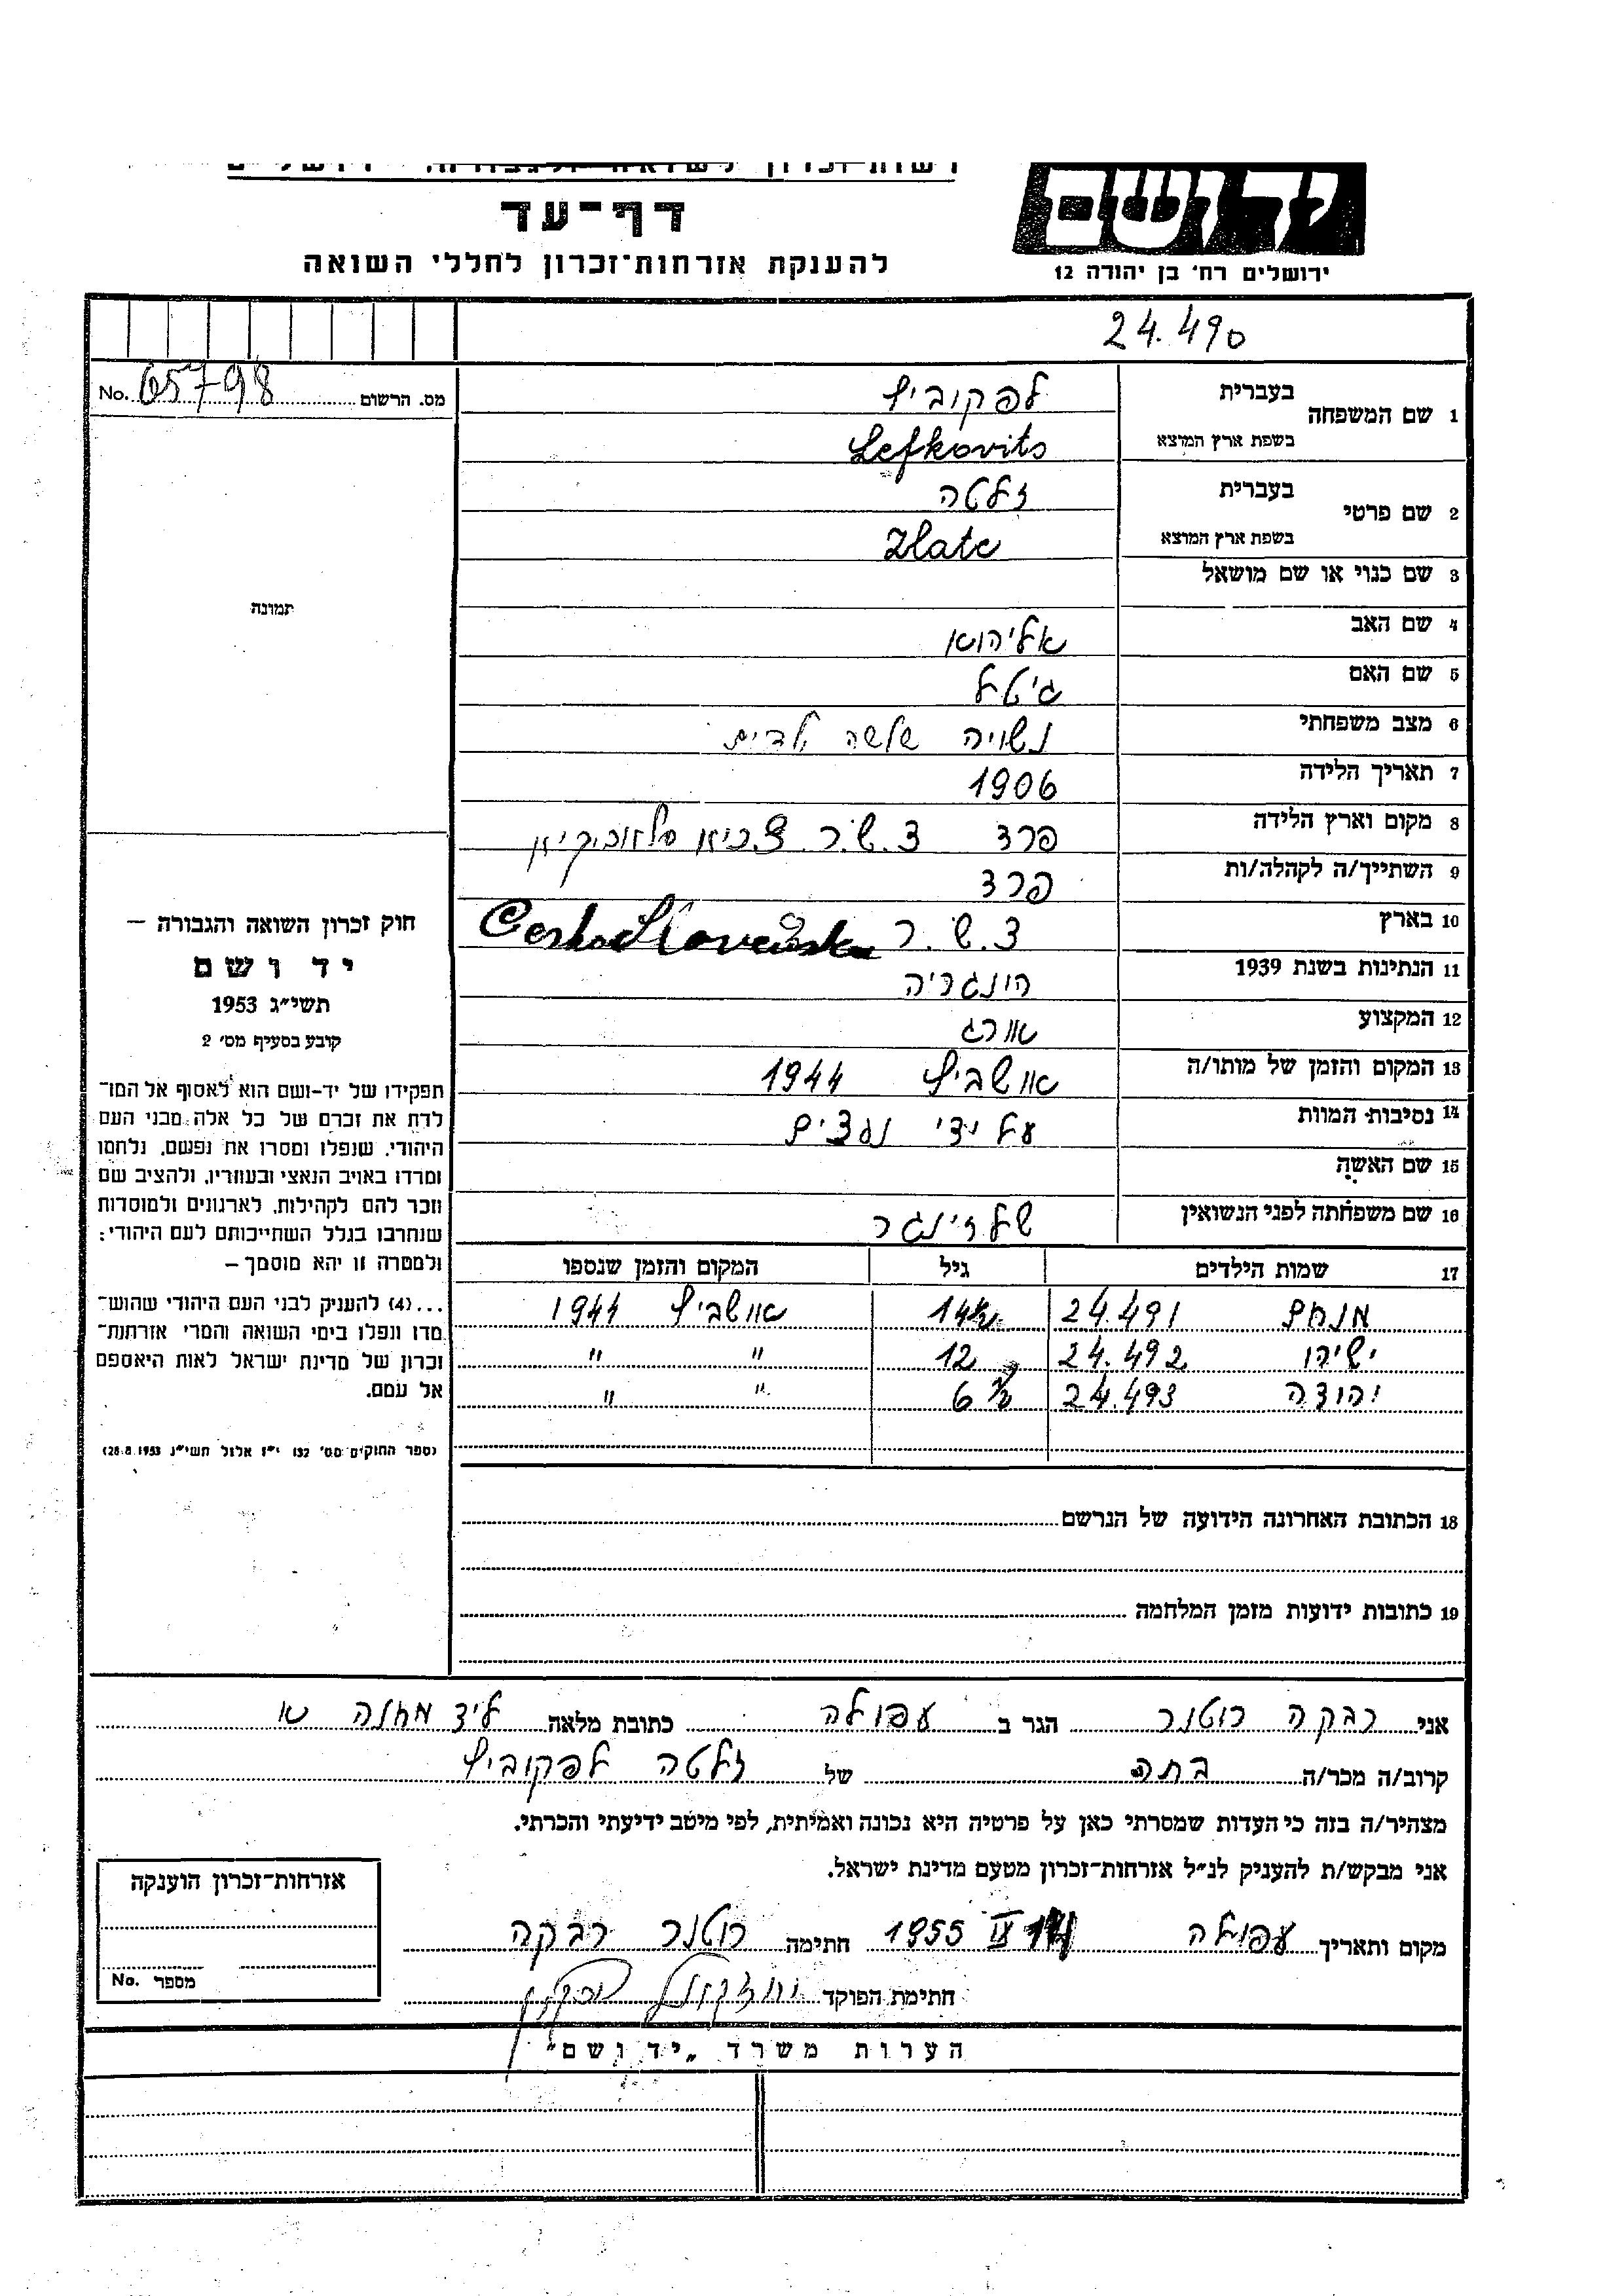 יד ושם
ירושלים רח׳ בן יהודה 12
דף־עד
להענקת אזרחות־זכרון לחללי השואה
24.490
מס. הרשום 65798 No.
1 שם המשפחה בעברית לפקוביץ
בשפת ארץ המוצא Lefkovits
2 שם פרטי בעברית זלטה
בשפת ארץ המוצא Zlate
3 שם כנוי או שם מושאל
4 שם האב אליהוא
5 שם האם גיטל
6 מצב משפחתי נשויה שלשה ילדים
7 תאריך הלידה 1906
8 מקום וארץ הלידה פרצ צ.ש.ר
9 השתייך/ה לקהלה/ות פרצ
10 בארץ צ.ש.ר
11 הנתינות בשנת 1939 הונגריה
12 המקצוע אורג
13 המקום והזמן של מותו/ה אושביץ 1944
14 נסיבות המוות על ידי נצים
15 שם האשה
16 שם משפחתה לפני הנשואין שלזינגר
17 שמות הילדים גיל המקום והזמן שנספו
מנחם 24.491 14½ אושביץ 1944
ישיהו 24.492 12 " "
יהודה 24.493 6½ " "
18 הכתובת האחרונה הידועה של הנרשם
19 כתובות ידועות מזמן המלחמה
תמונה
חוק זכרון השואה והגבורה —
יד ושם
תשי״ג 1953
קובע בסעיף מס׳ 2
תפקידו של יד-ושם הוא לאסוף אל המו־
לדת את זכרם של כל אלה מבני העם
היהודי, שנפלו ומסרו את נפשם, נלחמו
ומרדו באויב הנאצי ובעוזריו, ולהציב שם
וזכר להם לקהילות, לארגונים ולמוסדות
שנחרבו בגלל השתייכותם לעם היהודי:
ולמטרה זו יהא מוסמך —
...(4) להעניק לבני העם היהודי שהוש־
מדו ונפלו בימי השואה והמרי אזרחות־
זכרון של מדינת ישראל לאות היאספם
אל עמם.
(ספר החוקים מס׳ 132 י״ז אלול תשי״ג 28.8.1953)
אני רבקה רוטנר הגר ב עפולה כתובת מלאה ליד מחנה א
קרוב/ה מכר/ה בתה של זלטה לפקוביץ
מצהיר/ה בזה כי העדות שמסרתי כאן על פרטיה היא נכונה ואמיתית, לפי מיטב ידיעתי והכרתי.
אני מבקש/ת להעניק לנ״ל אזרחות־זכרון מטעם מדינת ישראל.
מקום ותאריך עפולה IX 1955 חתימה רוטנר רבקה
חתימת הפוקד
אזרחות־זכרון הוענקה
מספר No.
הערות משרד „יד ושם"